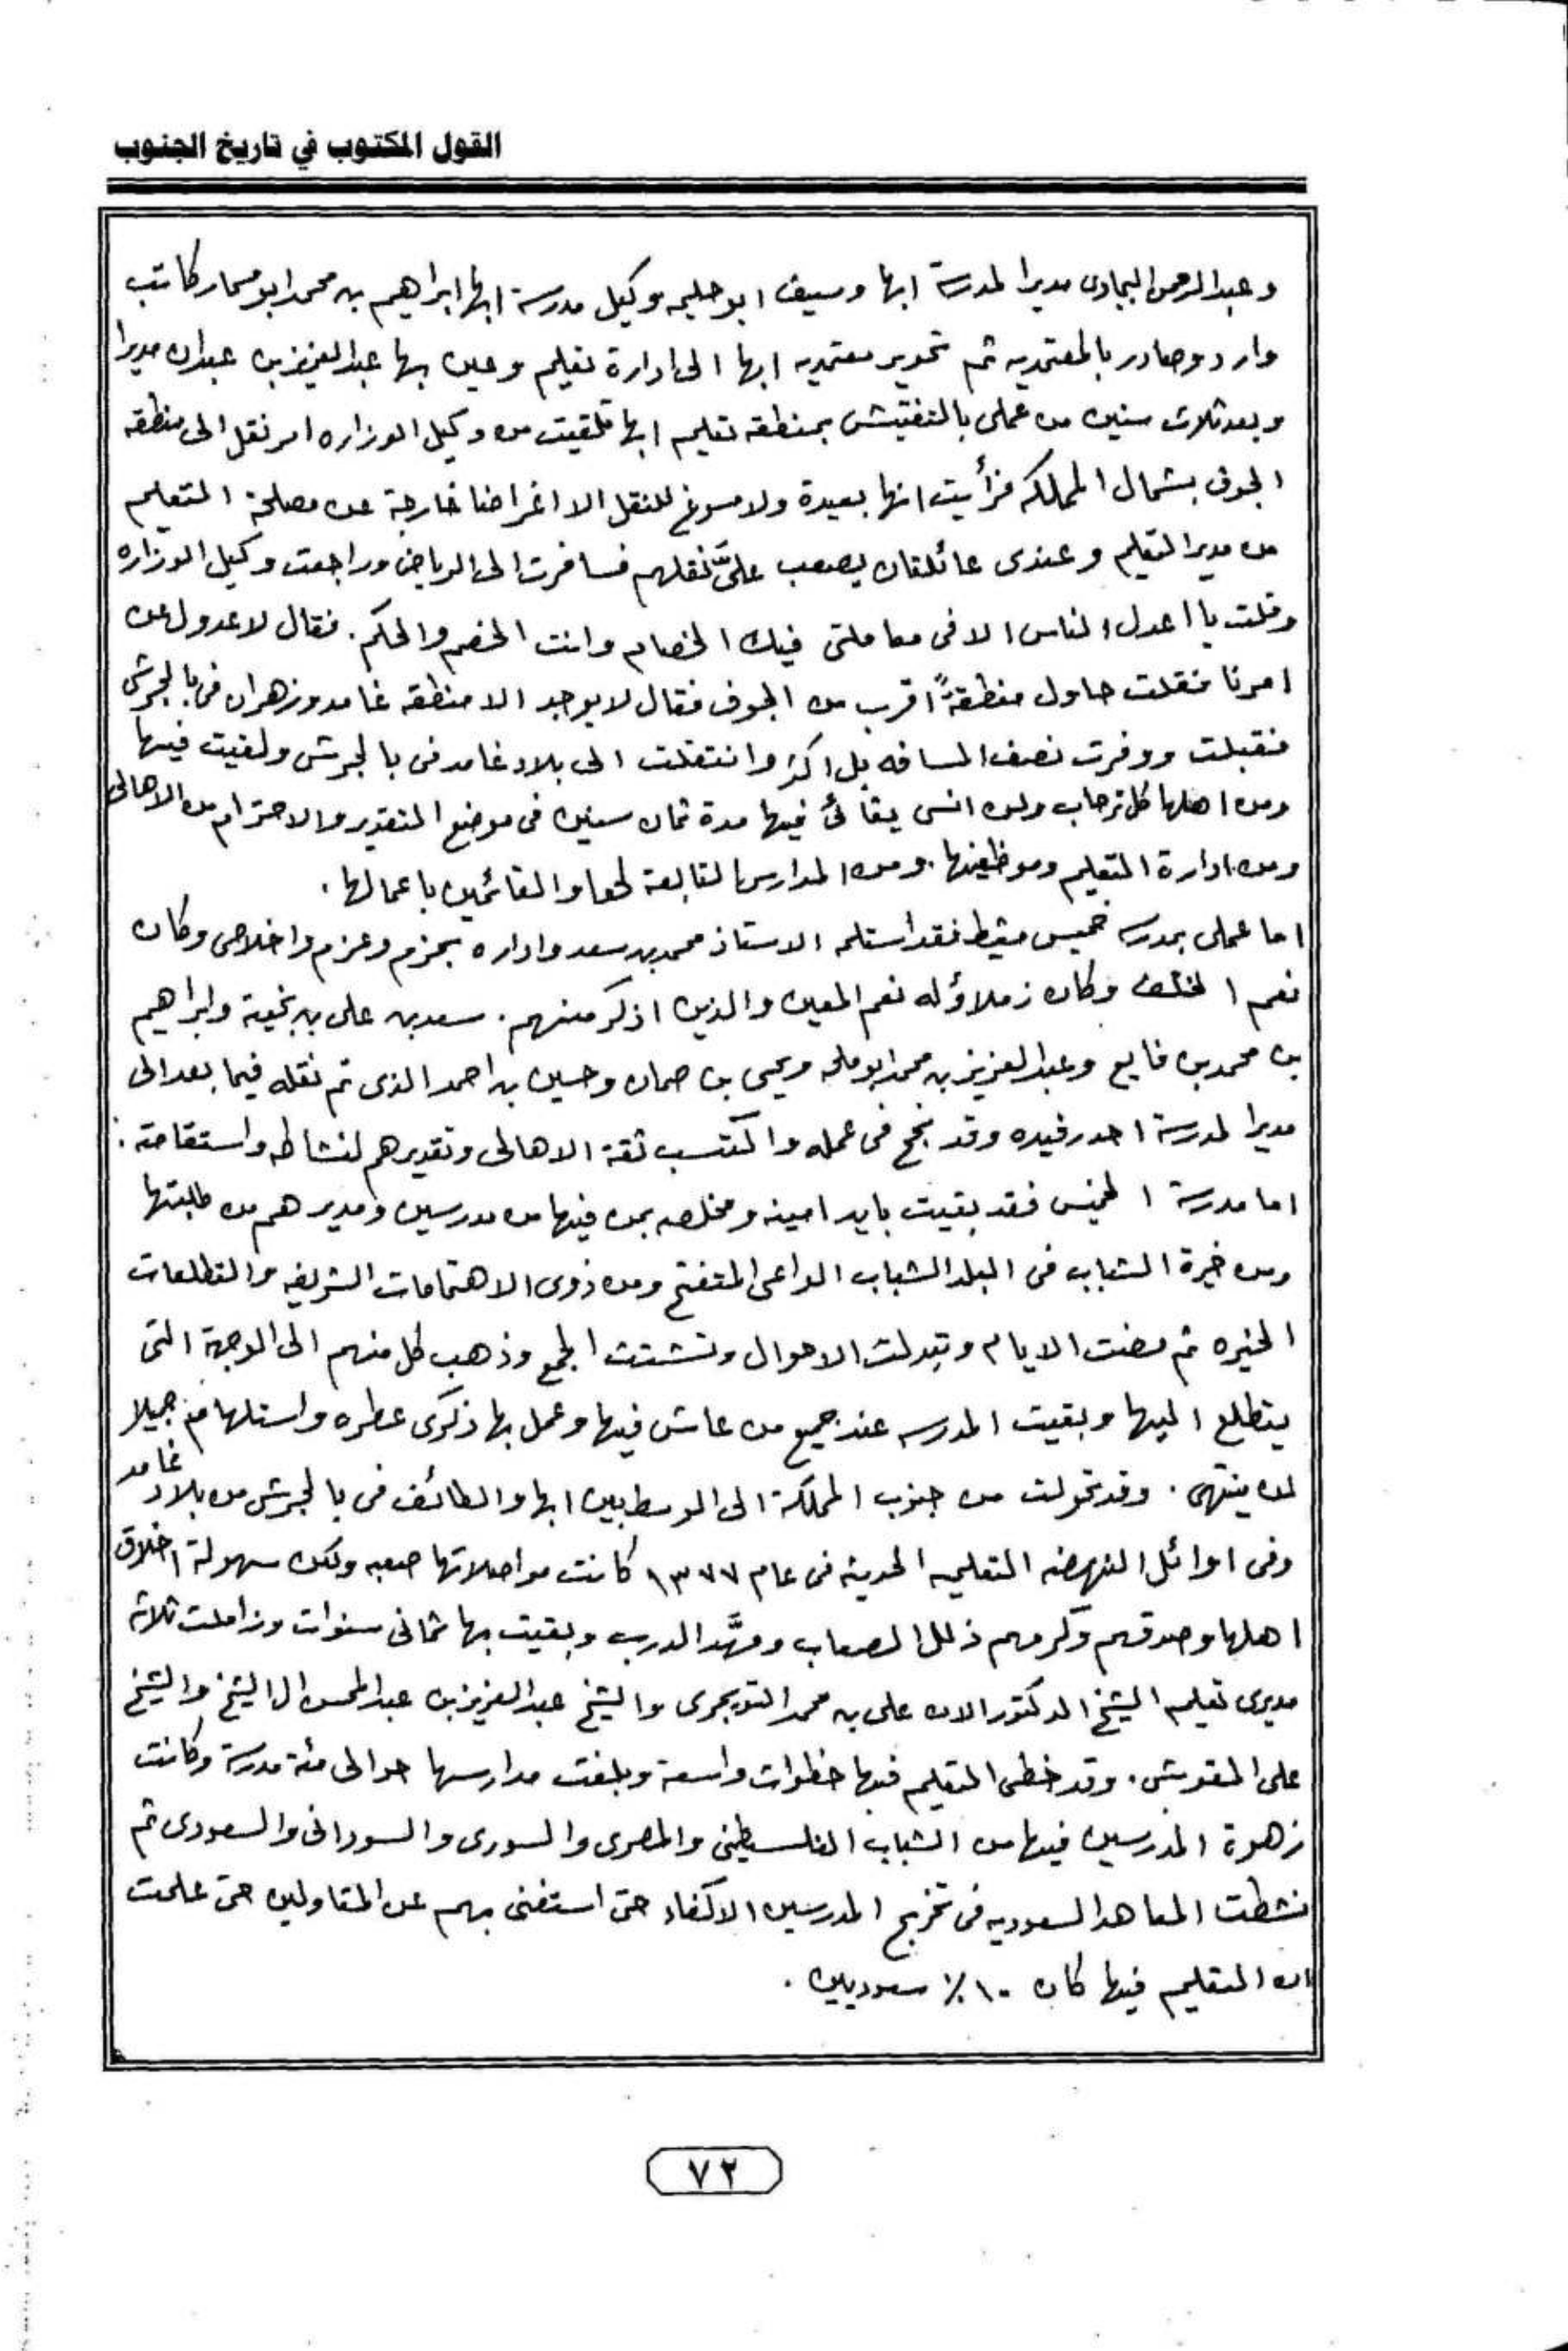 القول المكتوب في تاريخ الجنوب
وعبدالرحمن البجادى مديرا لمدرسة ابها وسيف ابو حليمه وكيل مدرسة ابها ابراهيم بن محمد ابو مسمار كاتب
وارد وصادر بالمعتمديه ثم تحوير معتمديه ابها الى ادارة تعليم وعين بها عبدالعزيز بن عبدان مديرا
وبعد ثلاث سنين من عملى بالتفتيش بمنطقه تعليم ابها تلقيت من وكيل الوزاره امر نقل الى منطقه
الجوف بشمال المملكه فرأيت انها بعيدة ولا مسوغ للنقل الا اغراضا خارجة عن مصلحة التعليم
من مدير التعليم وعندى عائلتان يصعب علىَّ نقلهم فسافرت الى الرياض وراجعت وكيل الوزاره
وقلت يا اعدل الناس الا فى معاملتى فيك الخصام وانت الخصم والحكم. فقال لا عدول عن
امرنا فقلت حاول منطقةً اقرب من الجوف فقال لا يوجد الا منطقه غامد وزهران فى بالجرشى
فقبلت ووفرت نصف المسافه بل اكثر وانتقلت الى بلاد غامد فى بالجرشى ولقيت فيها
ومن اهلها كل ترحاب ولن انسى بقائى فيها مدة ثمان سنين فى موضع التقدير والاحترام من الاهالى
ومن ادارة التعليم وموظفيها. ومن المدارس التابعة لها والقائمين باعمالها.
اما عملى بمدرسه خميس مشيط فقد استلمه الاستاذ محمد بن سعد واداره بحزم وعزم واخلاص وكان
نعم الخلف وكان زملاؤله نعم المعين والذين اذكر منهم. سعد بن على بن بخيته وابراهيم
بن محمد بن فايع وعبدالعزيز بن محمد ابو ملحه ويحيى بن حمان وحسين بن احمد الذى تم نقله فيما بعد الى
مديرا لمدرسة احد رفيده وقد نجح فى عمله واكتسب ثقة الاهالى وتقديرهم لنشاطه واستقامته.
اما مدرسة الخميس فقد بقيت بايد امينه ومخلصه بمن فيها من مدرسين ومديرهم من طلبتها
ومن خيرة الشباب فى البلد الشباب الواعى المتفتح ومن ذوى الاهتمامات الشريفه والتطلعات
الخيره ثم مضت الايام وتبدلت الاحوال وتشتت الجمع وذهب كل منهم الى الوجهة التى
يتطلع اليها وبقيت المدرسه عند جميع من عاش فيها وعمل بها ذكرى عطره واستلهام جميلا
لن ينتهى. وقد تحولت من جنوب المملكة الى الوسط بين ابها والطائف فى بالجرشى من بلاد غامد
وفى اوائل النهضه التعليميه الحديثه فى عام ١٣٧٧ كانت مواصلاتها صعبه ولكن سهولة اخلاق
اهلها وصدقهم وكرمهم ذلل الصعاب ومهَّد الدرب وبقيت بها ثمانى سنوات وزاملت ثلاثه
مديرى تعليم الشيخ الدكتور الان على بن محمد التويجرى والشيخ عبدالعزيز بن عبدالمحسن ال الشيخ والشيخ
على المقوشى. وقد خطى التعليم فيها خطوات واسعة وبلغت مدارسها حوالى مئة مدرسة وكانت
زهوة المدرسين فيها من الشباب الفلسطينى والمصرى والسورى والسودانى والسعودى ثم
نشطت المعاهد السعوديه فى تخريج المدرسين الاكفاء حتى استغنى بهم عن المتعاولين حتى علمت
ان التعليم فيها كان ١٠٪ سعوديين.
٧٢